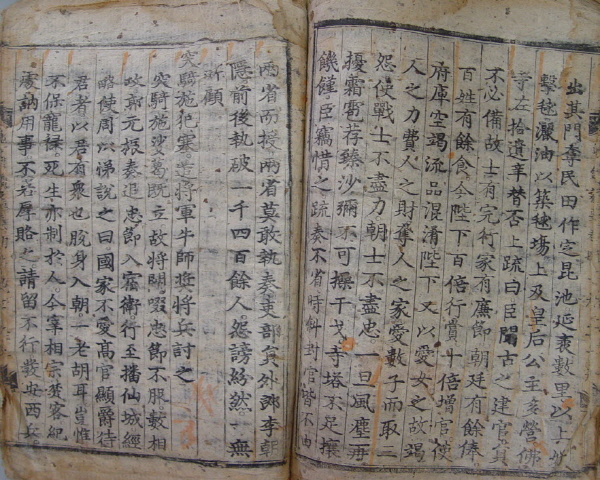 出其門奪民田作定昆池延袤數里以上好
擊毬灑油以築毬場上及皇后公主多營佛
寺左拾遺辛替否上疏曰臣聞古之建官員
不必備故士有完行家有廉節朝廷有餘俸
百姓有餘食今陛下百倍行賞十倍增官使
府庫空竭流品混淆陛下又以愛女之故竭
人之力費人之財奪人之家愛數子而取三
怨使戰士不盡力朝士不盡忠一旦風塵再
擾霜雹荐臻沙彌不可操干戈寺塔不足攘
饑饉臣竊惜之疏奏不省時斜封官皆不由
兩省而授兩省莫敢執奏吏部員外郎李朝
隱前後執破一千四百餘人怨謗紛然一無
所顧
突騎施犯塞遣將軍牛師奬將兵討之
突騎施娑葛既立故將闕啜忠節不服數相
攻郭元振奏追忠節入宿衛行至播仙城經
略使周以悌說之曰國家不愛高官顯爵待
君者以君有衆也脫身入朝一老胡耳豈惟
不保寵祿死生亦制於人今宰相宗楚客紀
處訥用事不若厚賂之請留不行發安西兵